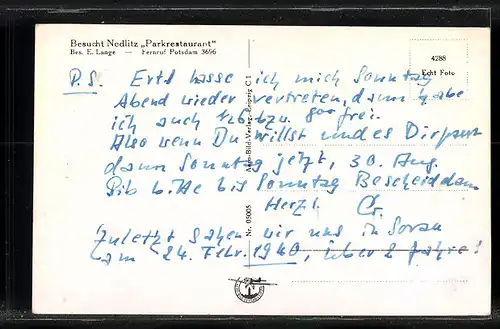 Besucht Nedlitz „Parkrestaurant"
Bes. E. Lange — Fernruf Potsdam 3696
4288
Echt Foto
P.S. lasse ich mich Sonntag
Abend wieder vertreten, dann habe
ich auch frei.
Also wenn Du willst und es Dir passt
dann Sonntag jetzt, 30. Aug.
bis Sonntag Bescheid dann
Herzl.
Zuletzt sahen wir uns in Sorau
am 24. Febr. 1940, über 2 Jahre!
Auto-Bild-Verlag, Leipzig C 1
Nr. 05005